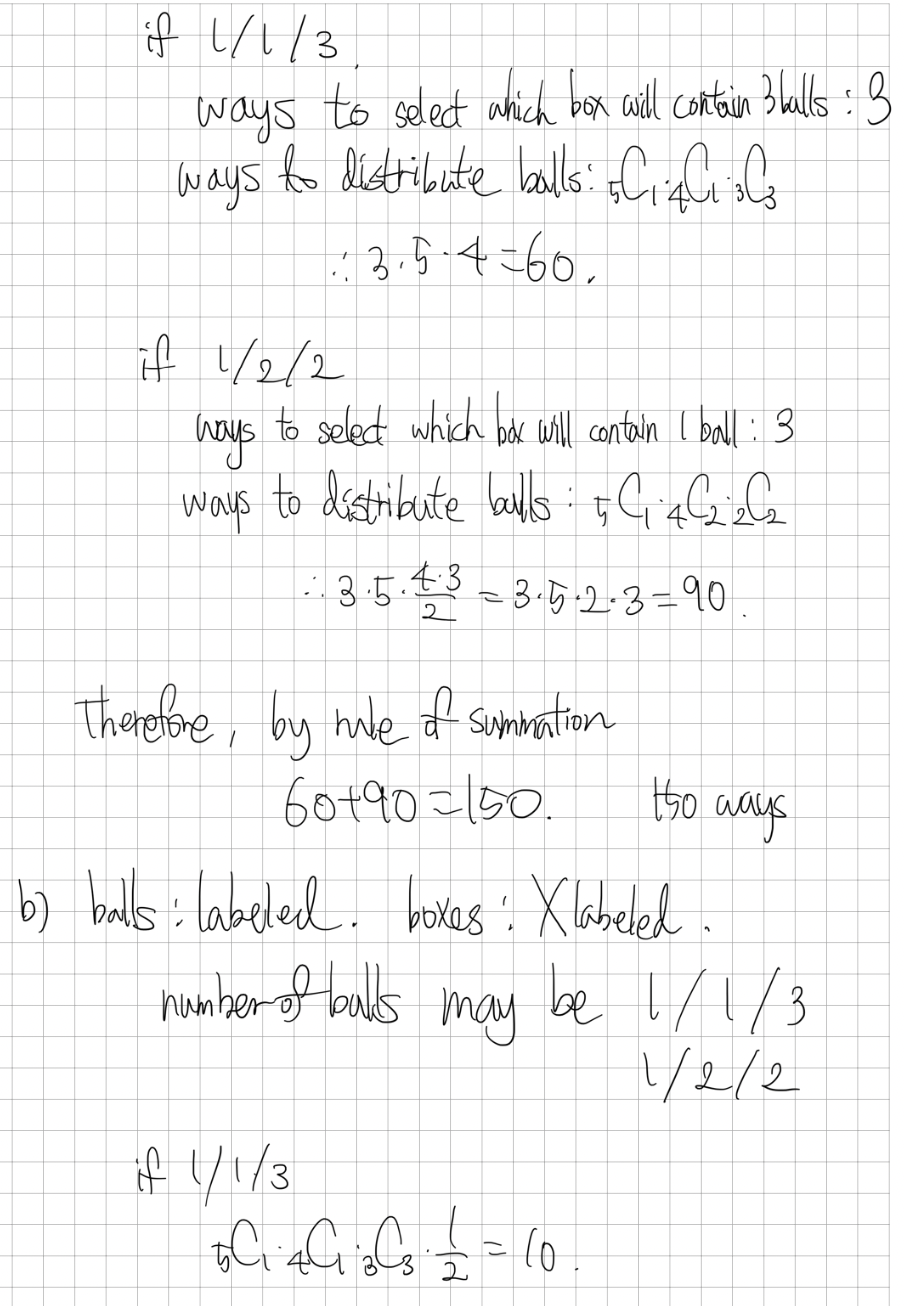 if 1/1/3,
ways to select which box will contain 3 balls : 3
ways to distribute balls: ₅C₁·₄C₁·₃C₃
∴ 3·5·4=60.
if 1/2/2
ways to select which box will contain 1 ball : 3
ways to distribute balls : ₅C₁·₄C₂·₂C₂
∴ 3·5·4·3/2 = 3·5·2·3=90.
Therefore, by rule of summation
60+90=150. 150 ways
b) balls : labeled. boxes : X labeled.
number of balls may be 1/1/3
1/2/2
if 1/1/3
₅C₁·₄C₁·₃C₃·1/2 = 10.